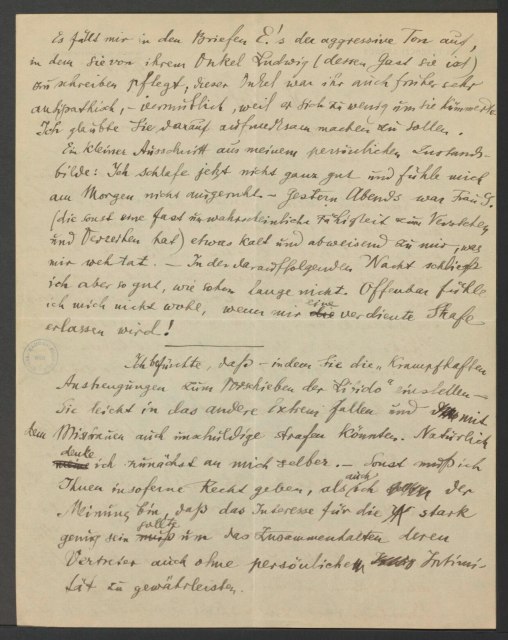 Es fällt mir in den Briefen E.'s der aggressive Ton auf,
in dem sie von ihrem Onkel Ludwig (dessen Gast sie ist)
zu schreiben pflegt, dieser Onkel war ihr auch früher sehr
antipathisch, – vermutlich, weil er sich zu wenig um sie kümmerte.
Ich glaubte Sie darauf aufmerksam machen zu sollen.
Ein kleiner Ausschnitt aus meinem persönlichen Zustands-
bilde: Ich schlafe jetzt nicht ganz gut und fühle mich
am Morgen nicht ausgeruht. – Gestern Abends war Frau G.
(die sonst eine fast unwahrscheinliche Fähigkeit zum Verstehen
und Verzeihen hat) etwas kalt und abweisend zu mir, was
mir weh tat. – In der darauffolgenden Nacht schlief
ich aber so gut, wie schon lange nicht. Offenbar fühle
ich mich nicht wohl, wenn mir eine verdiente Strafe
erlassen wird!
Ich befürchte, daß – indem Sie die „Krampfhaften
Anstrengungen zum Vorschieben der Libido" einstellen –
Sie leicht in das andere Extrem fallen und mit
dem Misstrauen auch unschuldige strafen könnten. Natürlich
denke ich zunächst an mich selber. – Sonst muß ich
Ihnen insoferne Recht geben, als auch ich der
Meinung bin, daß das Interesse für die stark
genug sein sollte um das Zusammenhalten deren
Vertreter auch ohne persönliche Intimi-
tät zu gewährleisten.